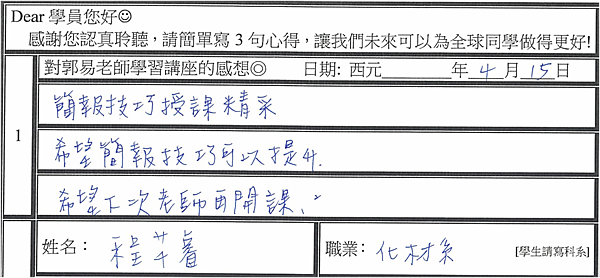 Dear 學員您好☺
感謝您認真聆聽，請簡單寫 3 句心得，讓我們未來可以為全球同學做得更好!
對郭易老師學習講座的感想◎ 日期: 西元 年 4 月 15 日
1
簡報技巧授課精采
希望簡報技巧可以提升.
希望下次老師再開課、
姓名： 程芊睿 職業： 化材系 [學生請寫科系]